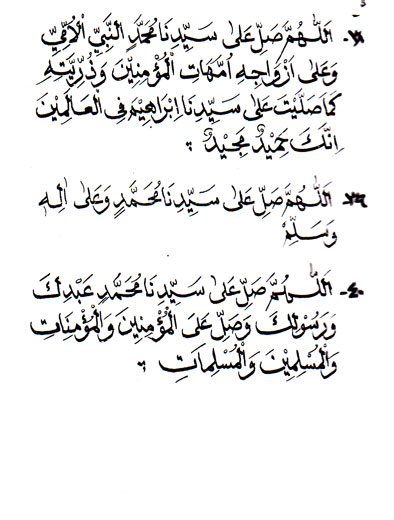 ٣٨- اَللّٰهُمَّ صَلِّ عَلىٰ سَيِّدِنَا مُحَمَّدٍ النَّبِيِّ الْاُمِّيِّ
وَعَلىٰ اَزْوَاجِهِ اُمَّهَاتِ الْمُؤْمِنِيْنَ وَذُرِّيَّتِهِ
كَمَا صَلَّيْتَ عَلىٰ سَيِّدِنَا اِبْرَاهِيْمَ فِى الْعَالَمِيْنَ
اِنَّكَ حَمِيْدٌ مَجِيْدٌ ؛
٣٩- اَللّٰهُمَّ صَلِّ عَلىٰ سَيِّدِنَا مُحَمَّدٍ وَعَلىٰ اٰلِهِ
وَسَلِّمْ
٤٠- اَللّٰهُمَّ صَلِّ عَلىٰ سَيِّدِنَا مُحَمَّدٍ عَبْدِكَ
وَرَسُوْلِكَ وَصَلِّ عَلَى الْمُؤْمِنِيْنَ وَالْمُؤْمِنَاتِ
وَالْمُسْلِمِيْنَ وَالْمُسْلِمَاتِ ؛